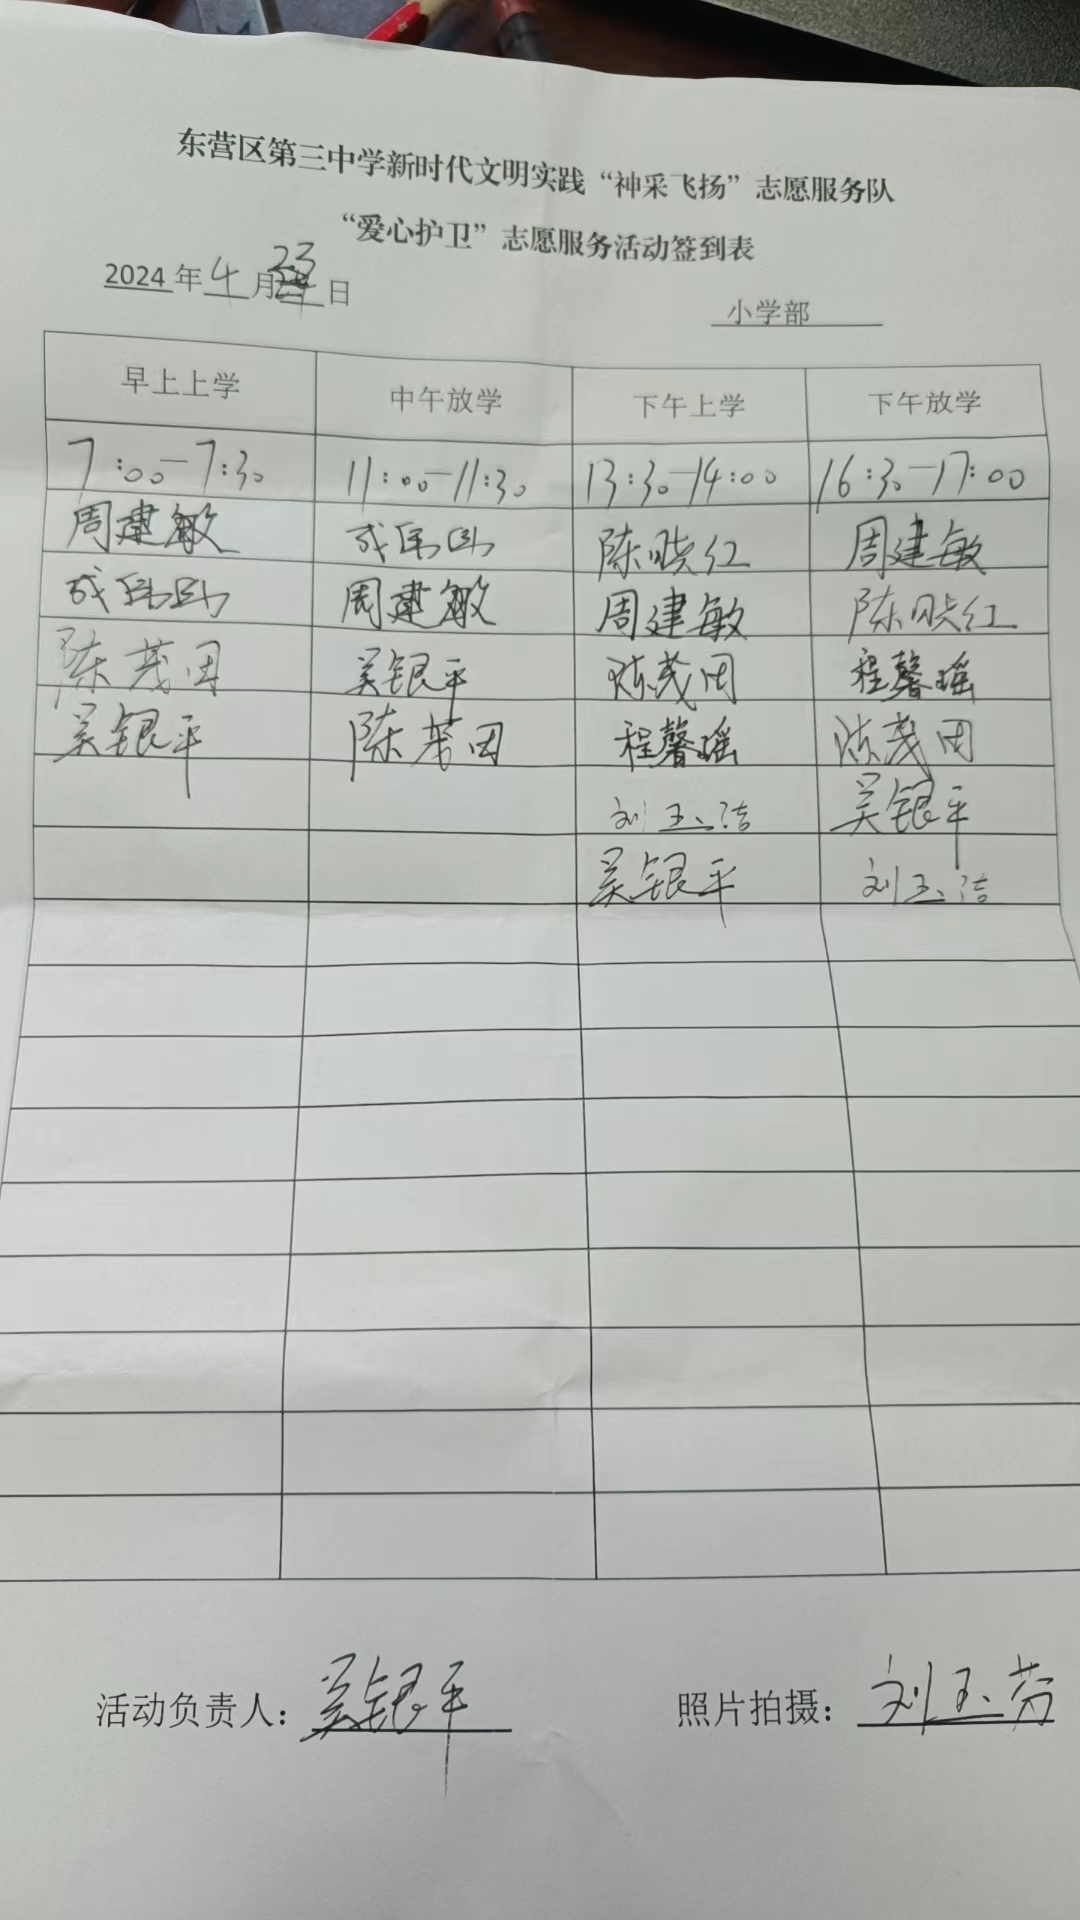 东营区第三中学新时代文明实践“神采飞扬”志愿服务队
“爱心护卫”志愿服务活动签到表
2024年4月23日
小学部
早上上学 中午放学 下午上学 下午放学
7:00-7:30 11:00-11:30 13:30-14:00 16:30-17:00
周建敏 陈晓红 周建敏
周建敏 周建敏 陈晓红
陈茂田 吴银平 陈茂田 程馨瑶
吴银平 陈茂田 程馨瑶 陈茂田
刘玉洁 吴银平
吴银平 刘玉洁
活动负责人：吴银平 照片拍摄：刘玉芳